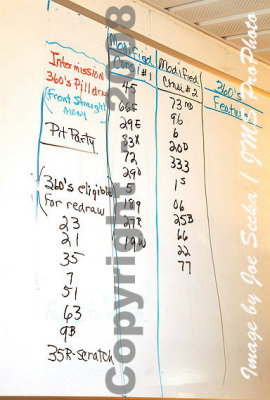 Intermission
360's Pill draw
(Front Straight
Away)
Pit Party
360's eligible
for redraw
23
21
35
7
51
63
9B
35R-scratch
Modified
Cons #1
45
66E
29E
33X
72
29D
5
18g
27R
19W
Modified
Cons #2
73ND
96
6
20D
333
1S
06
25B
66
22
77
360's
Feature
Copyright - 2008
Image by Joe Secka / JMS ProPhoto